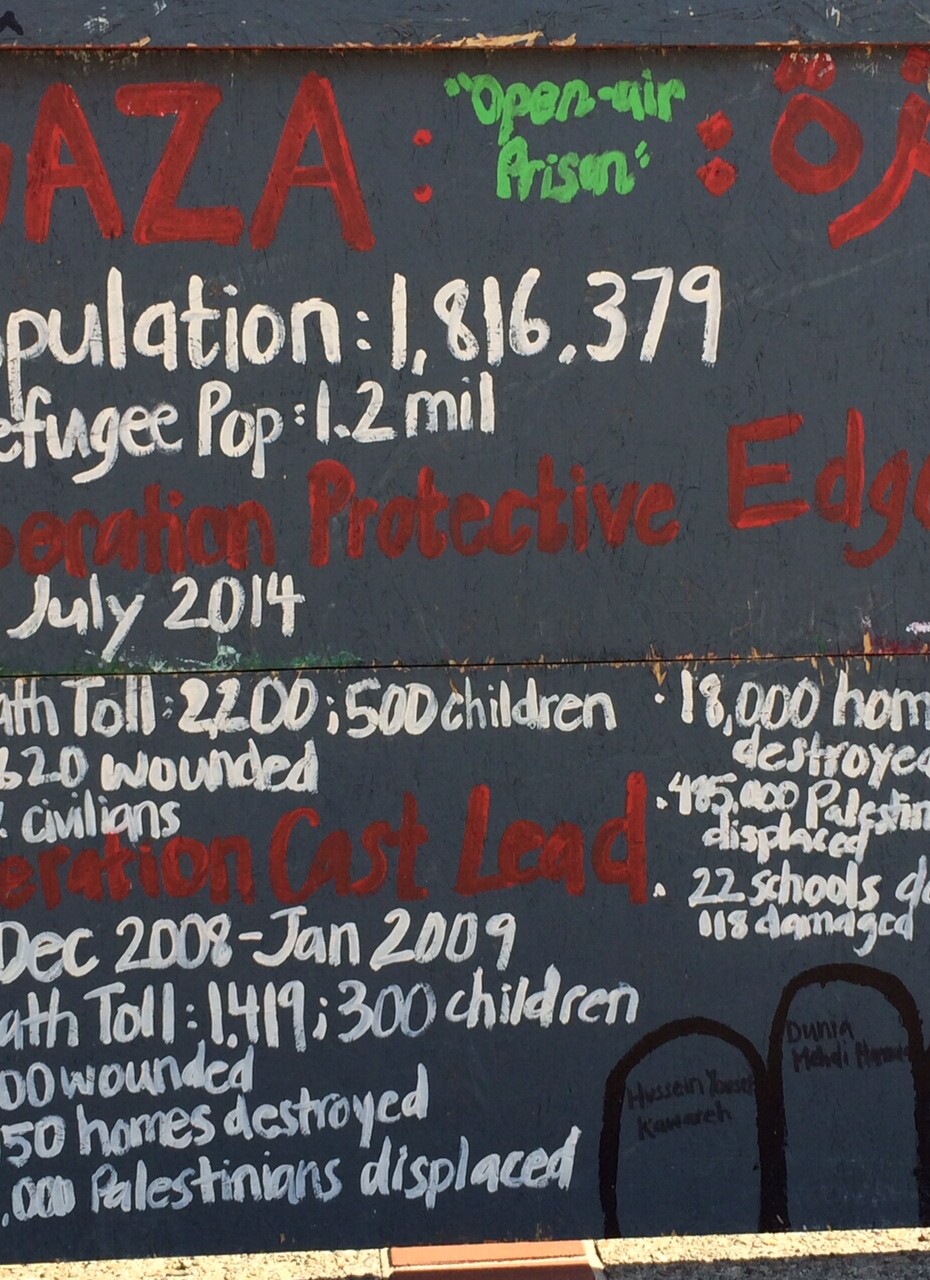 GAZA : "Open-air : غزة
Prison"
pulation: 1,816,379
efugee Pop: 1.2 mil
peration Protective Edge
July 2014
ath Toll: 2200; 500 children
620 wounded
% civilians
· 18,000 hom
destroyed
· 485,000 Palestin
displaced
· 22 schools de
118 damaged
eration Cast Lead
Dec 2008-Jan 2009
ath Toll: 1,419; 300 children
00 wounded
50 homes destroyed
,000 Palestinians displaced
Hussein Yousef
Kawareh
Dunia
Mehdi